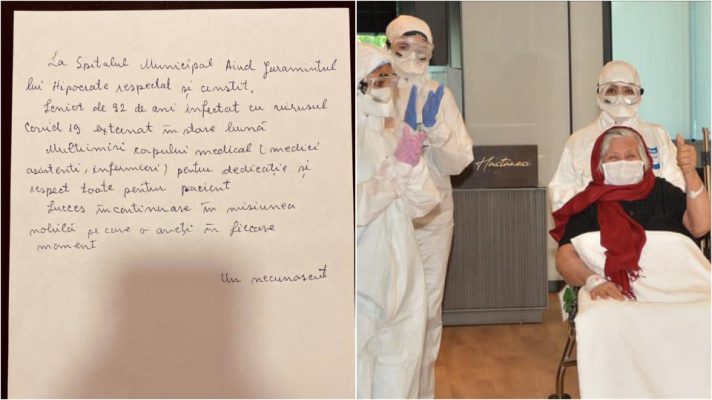 La Spitalul Municipal Aiud Juramîntul
lui Hipocrate respectat și cinstit.
Senior de 92 de ani infectat cu virusul
Covid 19 externat în stare bună
Mulțumiri corpului medical (medici
asistenti, infirmieri) pentru dedicație și
respect toate pentru pacient
Succes în continuare în misiunea
nobilă pe care o aveți în fiecare
moment
Un necunoscut
Hastanesi